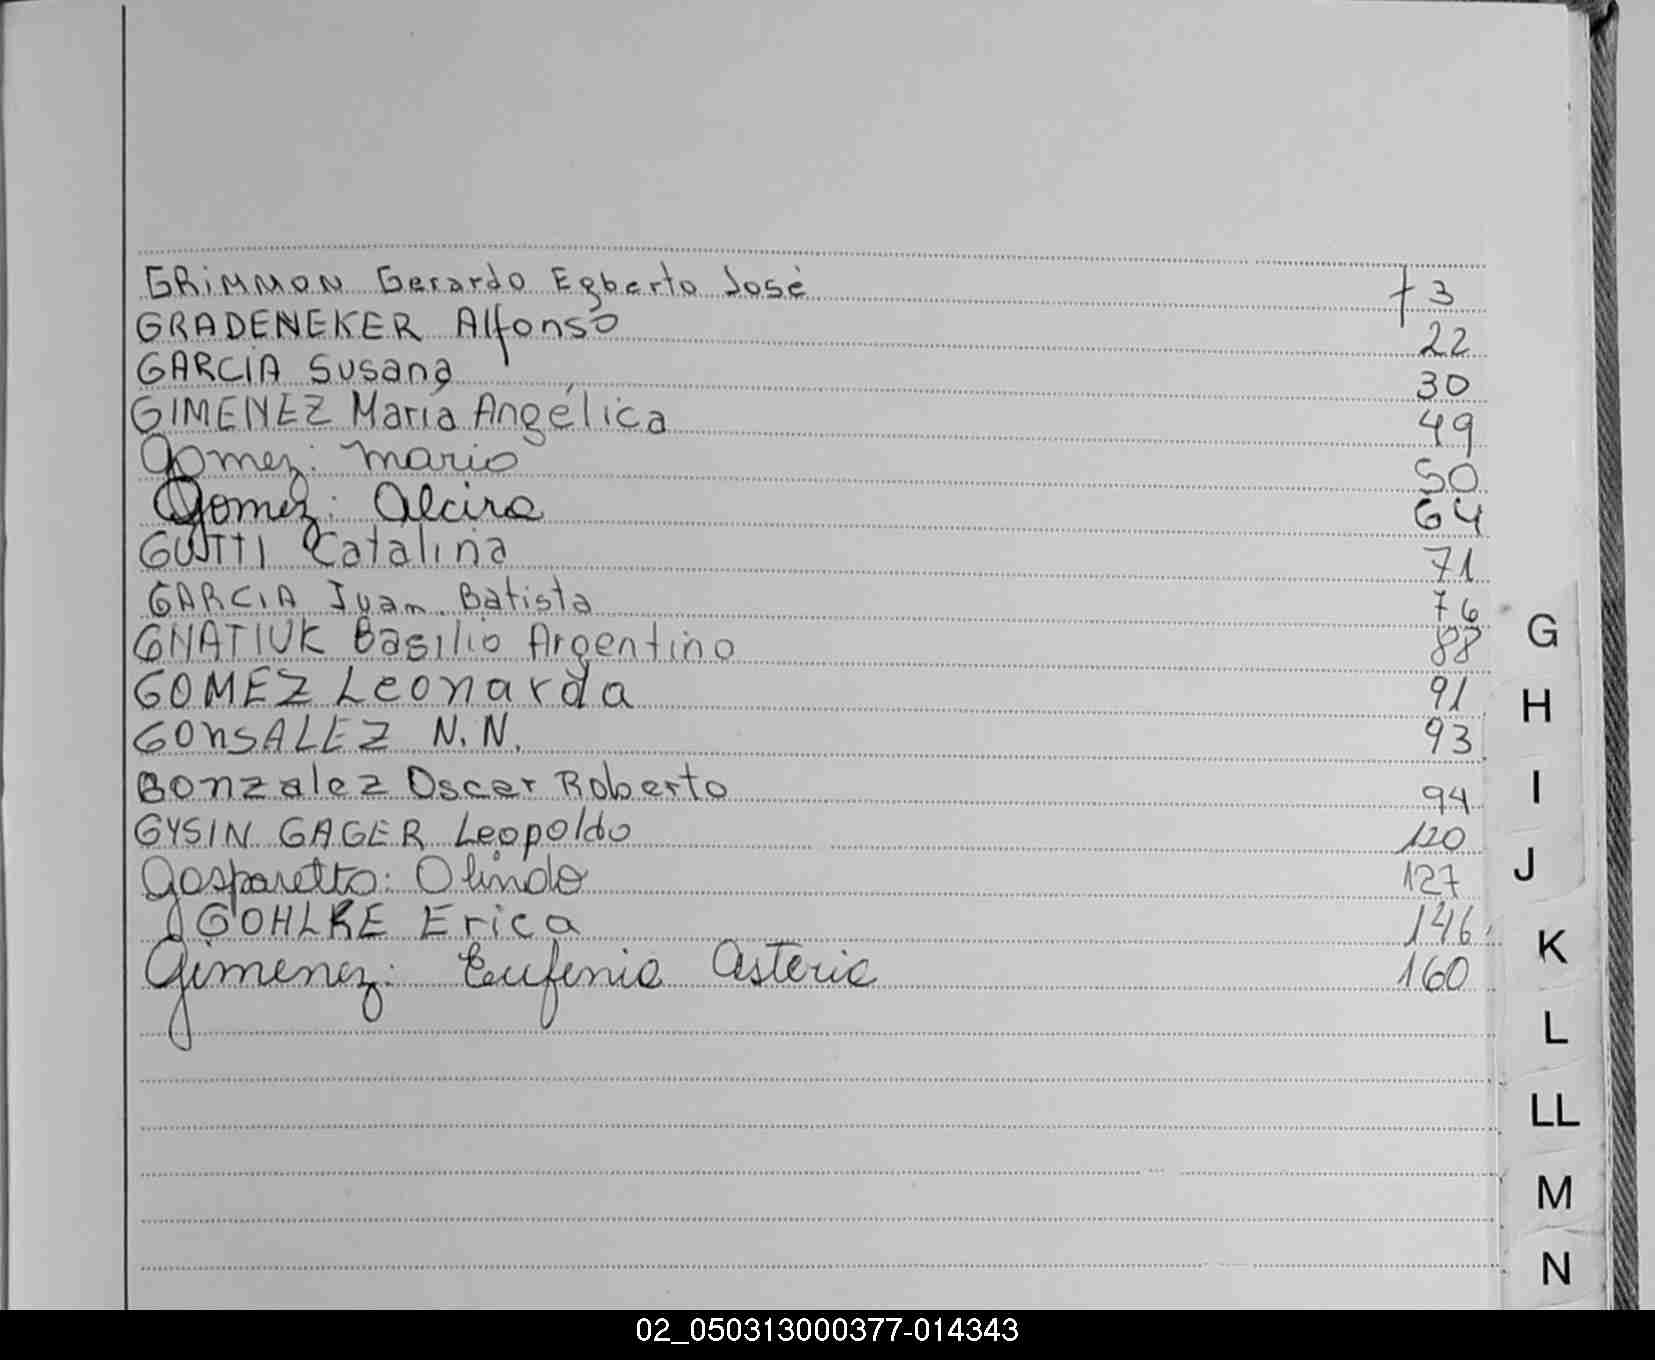 GRIMMON Gerardo Egberto José 3
GRADENEKER Alfonso 22
GARCIA Susana 30
GIMENEZ María Angélica 49
Gomez: Mario 50
Gomez: Alcira 64
GUTTI Catalina 71
GARCIA Juan Batista 76
GNATIUK Basilio Argentino 88
GOMEZ Leonarda 91
GONSALEZ N.N. 93
GONZALEZ Oscar Roberto 94
GYSIN GAGER Leopoldo 120
Gasparetto: Olindo 127
GOHLKE Erica 146
Gimenez: Eufenia Asteria 160
G
H
I
J
K
L
LL
M
N
02_050313000377-014343